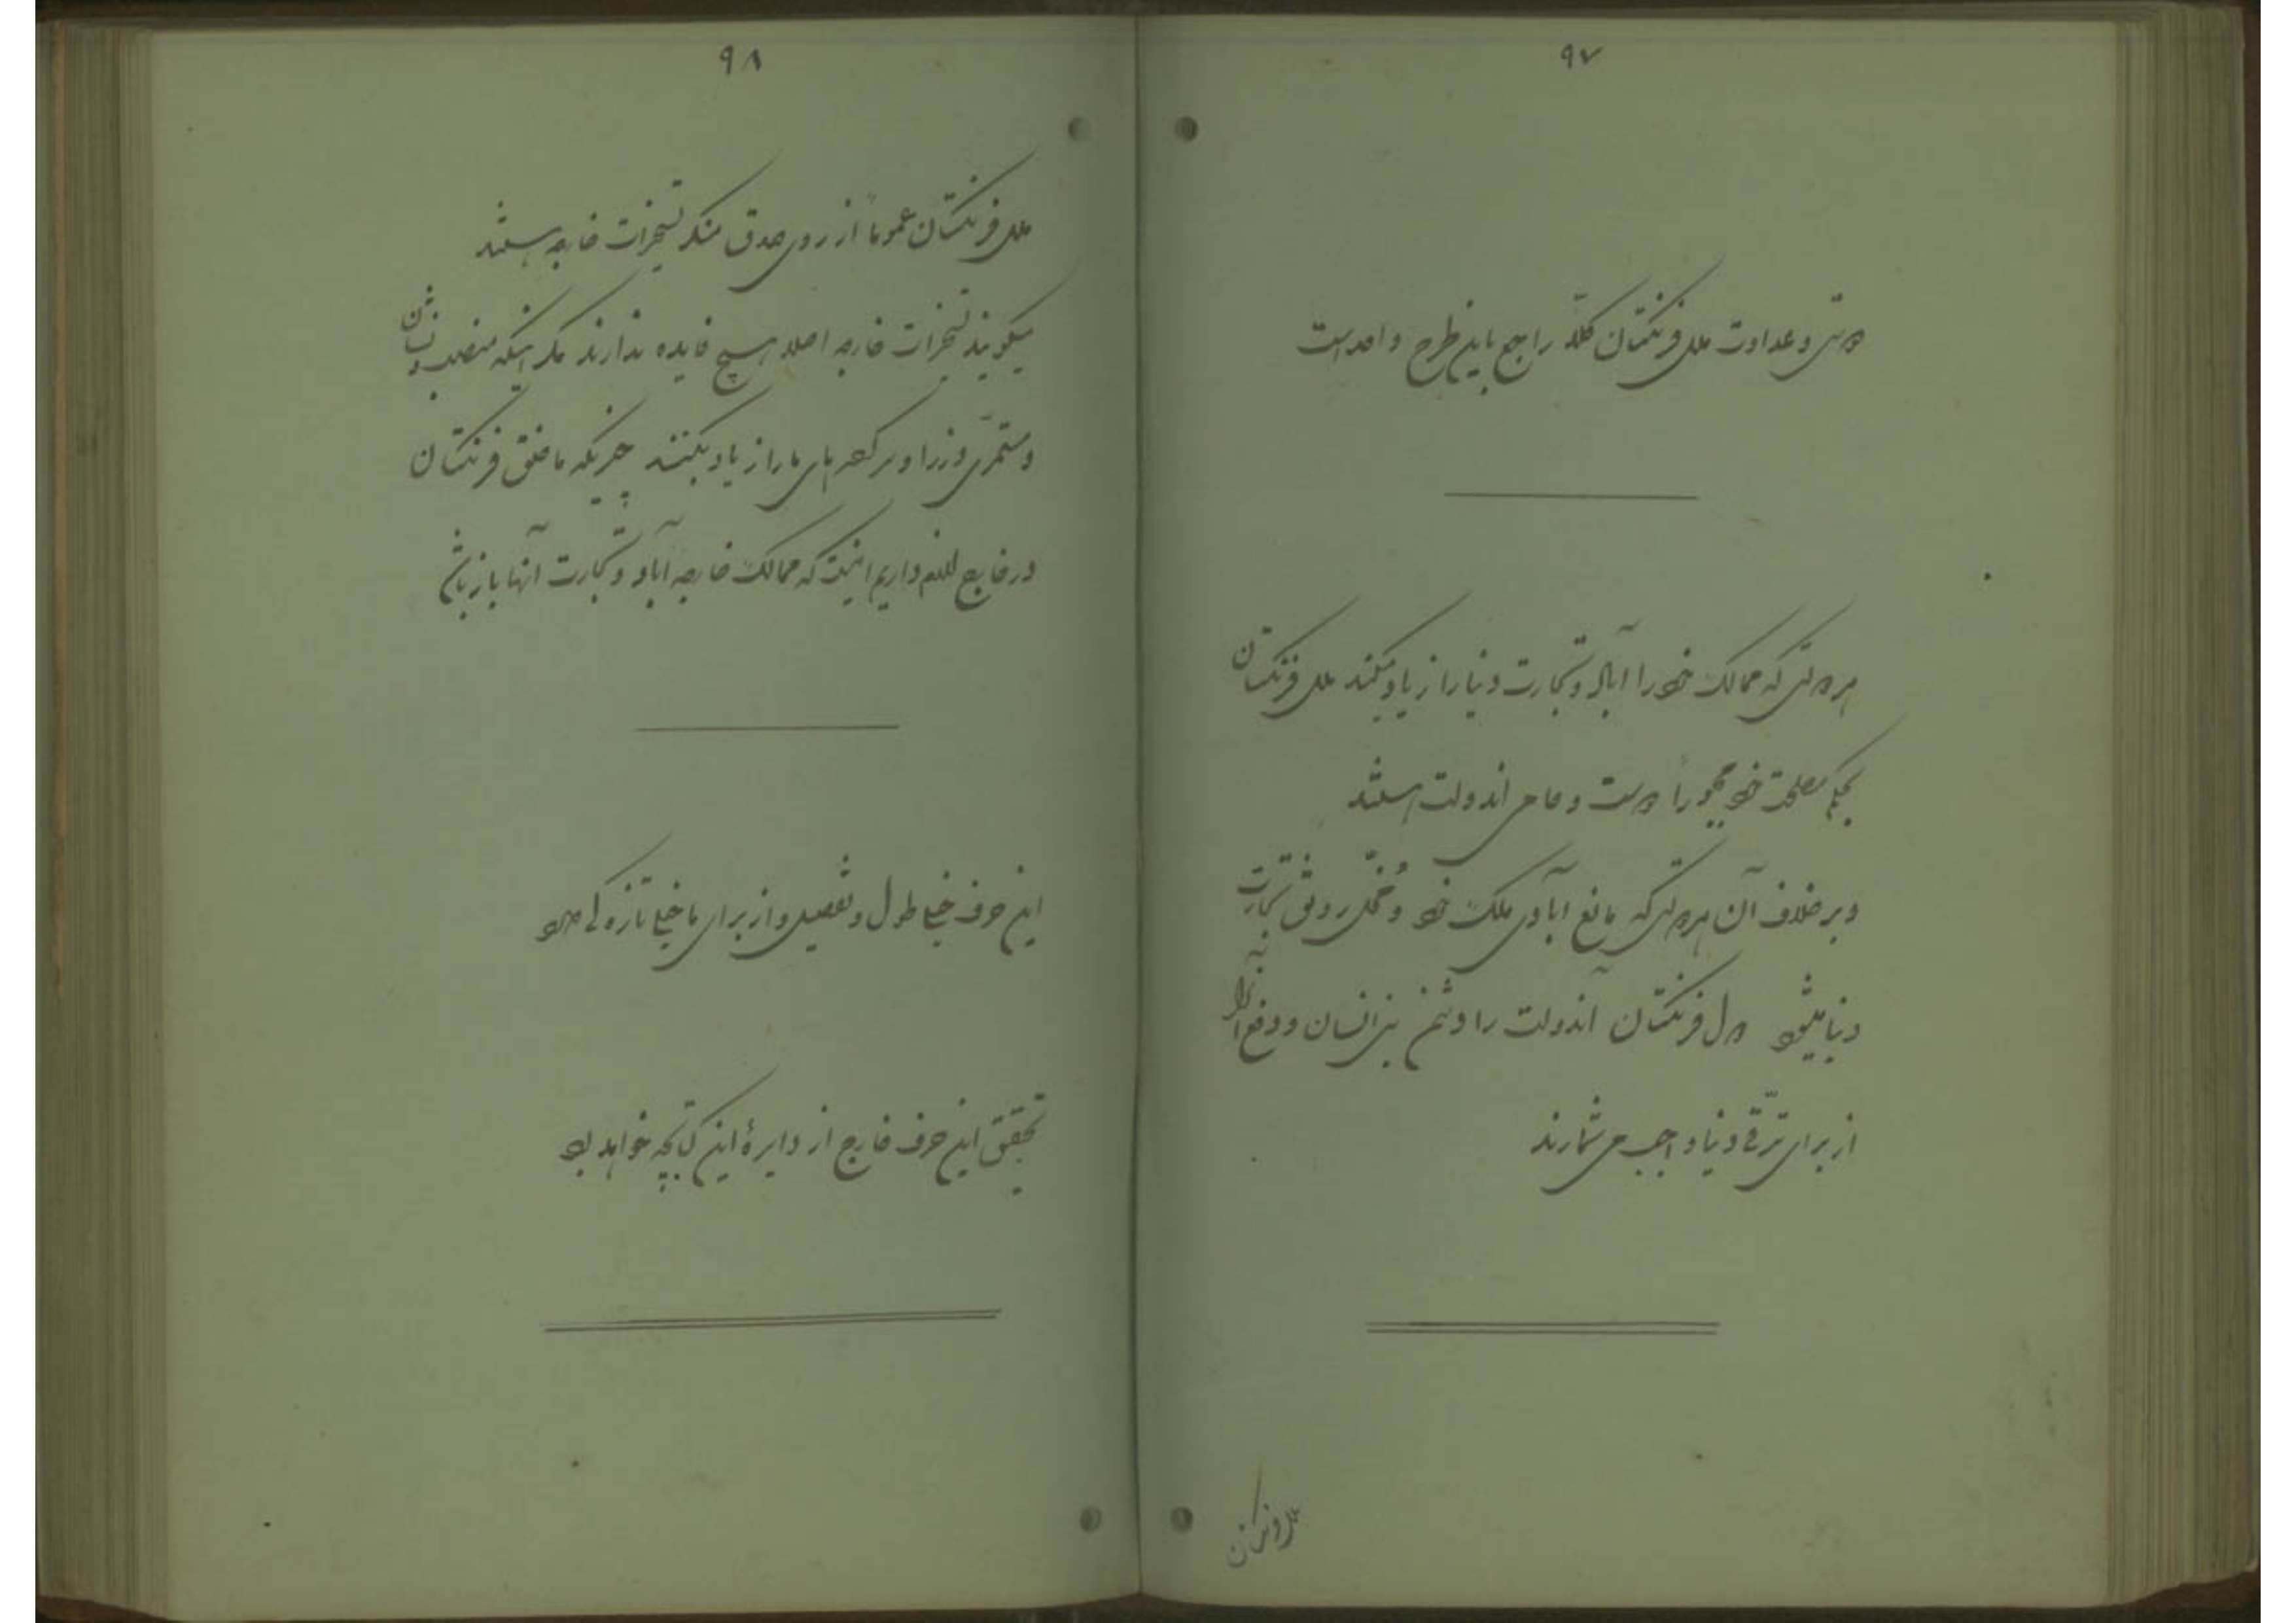 ۹۷
دوستی و عداوت ملل فرنگستان کلاً راجع باین طرح واحد است
هر دولتی که ممالک خود را آباد و تجارت دنیا را زیاد میکند ملل فرنگستان
بحکم مصلحت خود مجبوراً دوست و حامی آندولت هستند
و برخلاف آن هر دولتی که مانع آبادی ملک خود و مخل رونق تجارت
دنیا میشود دول فرنگستان آندولت را دشمن بنی انسان و دفع آنرا
از برای ترقی دنیا واجب می شمارند
ملل فرنگستان
۹۸
ملل فرنگستان عموماً از روی صدق منکر تسخیرات خارجه هستند
میگویند تسخیرات خارجه اصلا هیچ فایده ندارند مگر اینکه منصب و نشان
و مستمری وزرا و سرکرده های ما را زیاد بکنند چیزیکه ما خلق فرنگستان
در خارج لازم داریم اینست که ممالک خارجه آباد و تجارت آنها با ز باشد
این حرف خیلی طول و تفصیل و از برای ما خیلی تازگی دارد
تحقیق این حرف خارج از دایرۀ این کتابچه خواهد بود